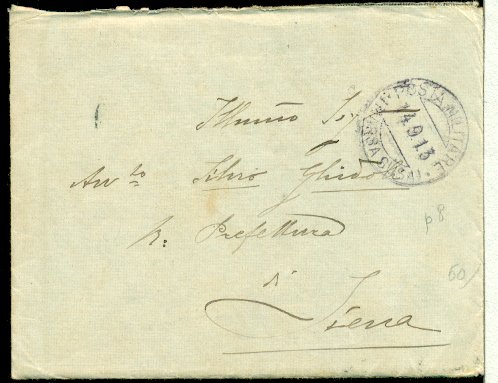 Illmo Sig
Avv.to Silvio Ghidoli
R. Prefettura
di
Siena
POSTA MILITARE
14.9.13
p8
50/